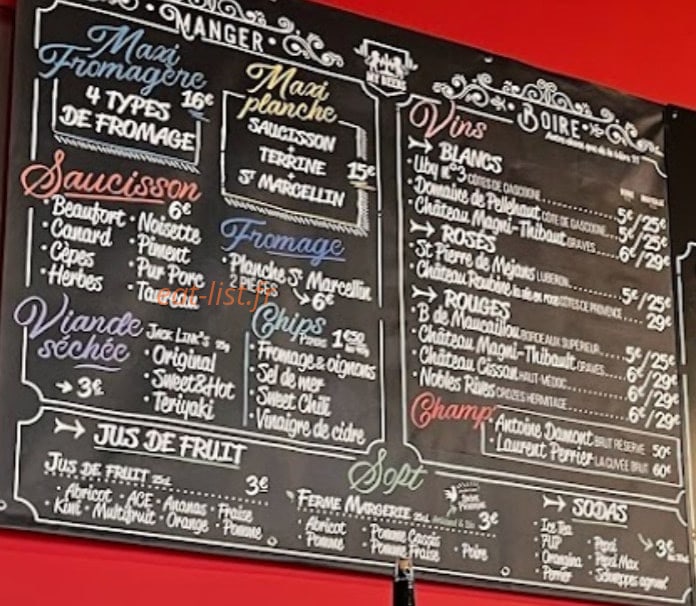 MANGER
Maxi
Fromagère
16€
4 TYPES
DE FROMAGE
Maxi
planche
SAUCISSON
+
TERRINE
+
ST MARCELLIN
15€
Saucisson
6€
• Beaufort • Noisette
• Canard • Piment
• Cèpes • Pur Porc
• Herbes
Fromage
• Planche St Marcellin
→ 6€
Viande
séchée
→ 3€
JACK LINK'S
• Original
• Sweet&Hot
• Teriyaki
Chips
1€50
• Fromage & oignons
• Sel de mer
• Sweet Chili
• Vinaigre de cidre
MY BEERS
BOIRE
Vins
BLANCS
• Uby N°3 CÔTES DE GASCOGNE
• Domaine de Pellehaut CÔTE DE GASCOGNE 5€/25€
• Château Magni-Thibaut GRAVES 5€/25€
6€/29€
ROSÉS
• St Pierre de Mejans LUBERON 5€/25€
• Château Roubine la vie en rose CÔTES DE PROVENCE 29€
ROUGES
• B de Maucaillou BORDEAUX SUPÉRIEUR 5€/25€
• Château Magni-Thibault GRAVES 6€/29€
• Château Cissan HAUT-MEDOC 6€/29€
• Nobles Rives CROZES HERMITAGE 6€/29€
Champ'
• Antoine Damont BRUT RÉSERVE 50€
• Laurent Perrier LA CUVÉE BRUT 60€
Soft
JUS DE FRUIT
JUS DE FRUIT 25cL 3€
• Abricot • ACE • Ananas • Fraise
• Kiwi • Multifruit • Orange • Pomme
• FERME MARGERIE 25cL 3€
• Abricot • Pomme Cassis
• Pomme • Pomme Fraise • Poire
SODAS
• Ice Tea
• 7UP • Pepsi
• Orangina • Pepsi Max
• Perrier • Schweppes agrum'
→ 3€
eat-list.fr